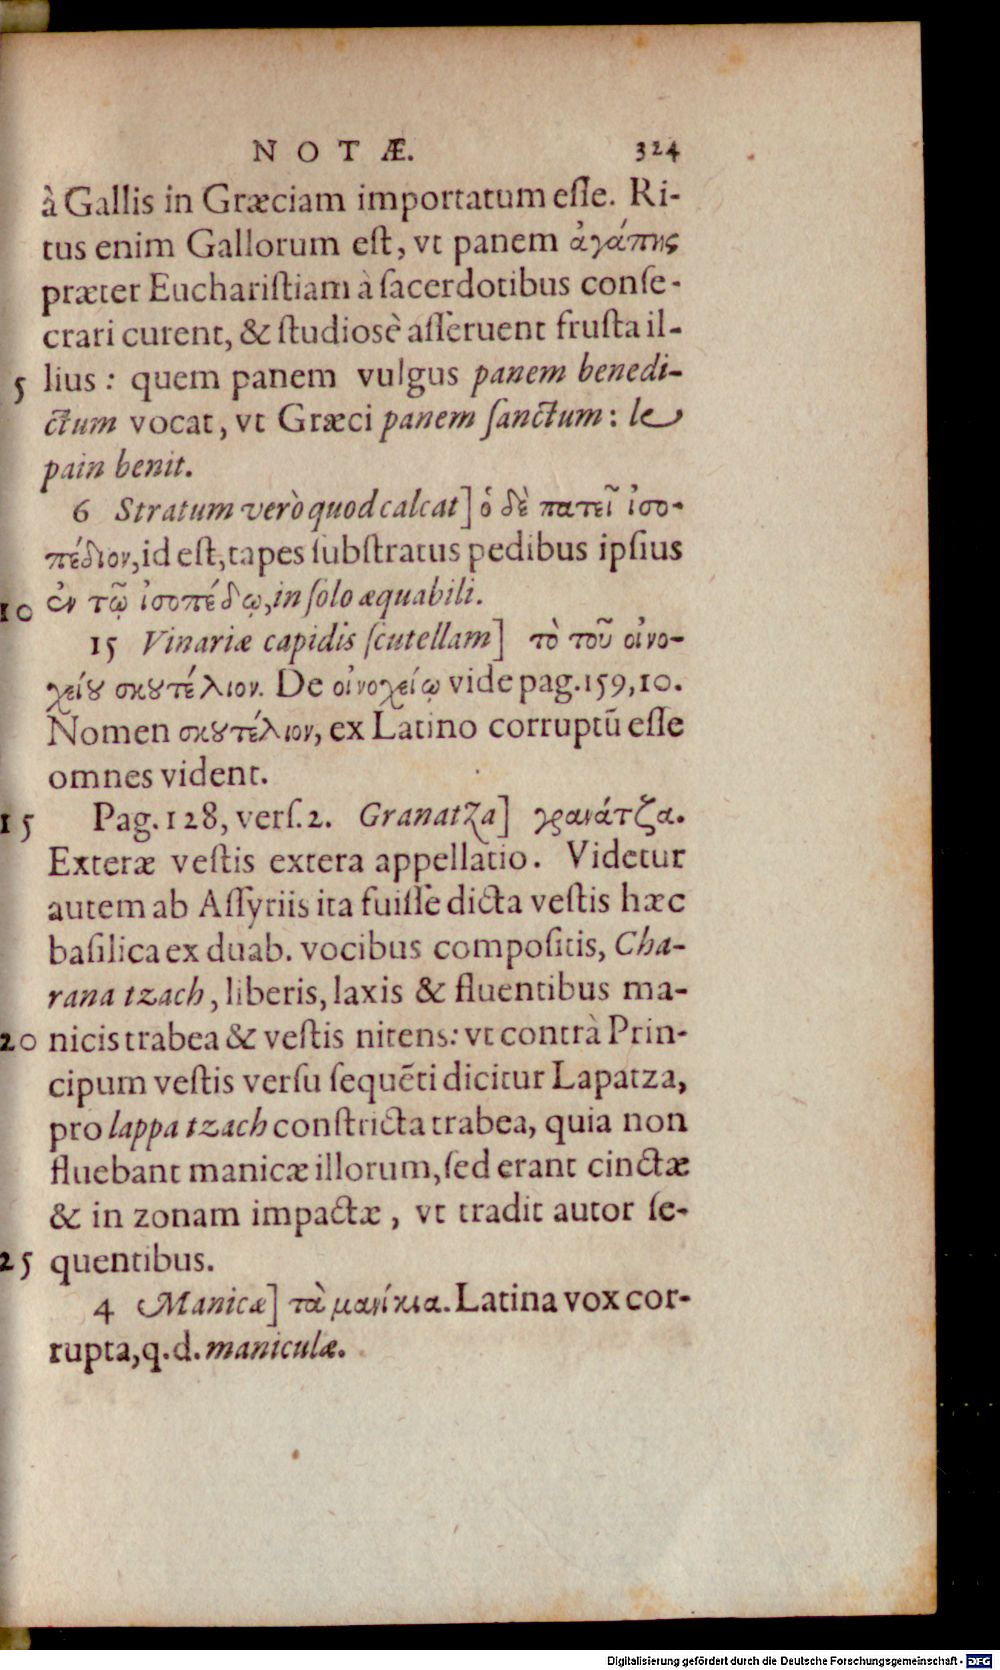 NOTÆ. 324
à Gallis in Græciam importatum eſſe. Ri-
tus enim Gallorum eſt, vt panem ἀγάπης
præter Euchariſtiam à ſacerdotibus conſe-
crari curent, & ſtudiosè aſſeruent fruſta il-
5 lius: quem panem vulgus panem benedi-
ctum vocat, vt Græci panem ſanctum: le
pain benit.
6 Stratum verò quod calcat] ὁ δὲ πατεῖ ἰσο-
πέδιον, id eſt, tapes ſubſtratus pedibus ipſius
10 ἐν τῷ ἰσοπέδῳ, in ſolo æquabili.
15 Vinariæ capidis ſcutellam] τὸ τοῦ οἰνο-
χείȣ σκȣτέλιον. De οἰνοχείῳ vide pag. 159, 10.
Nomen σκȣτέλιον, ex Latino corruptũ eſſe
omnes vident.
15 Pag. 128, verſ. 2. Granatza] γρανάτζα.
Exteræ veſtis extera appellatio. Videtur
autem ab Aſſyriis ita fuiſſe dicta veſtis hæc
baſilica ex duab. vocibus compoſitis, Cha-
rana tzach, liberis, laxis & fluentibus ma-
20 nicis trabea & veſtis nitens: vt contrà Prin-
cipum veſtis verſu ſequẽti dicitur Lapatza,
pro lappa tzach conſtricta trabea, quia non
fluebant manicæ illorum, ſed erant cinctæ
& in zonam impactæ, vt tradit autor ſe-
25 quentibus.
4 Manicæ] τὰ μανίκια. Latina vox cor-
rupta, q. d. maniculæ.
Digitalisierung gefördert durch die Deutsche Forschungsgemeinschaft - DFG